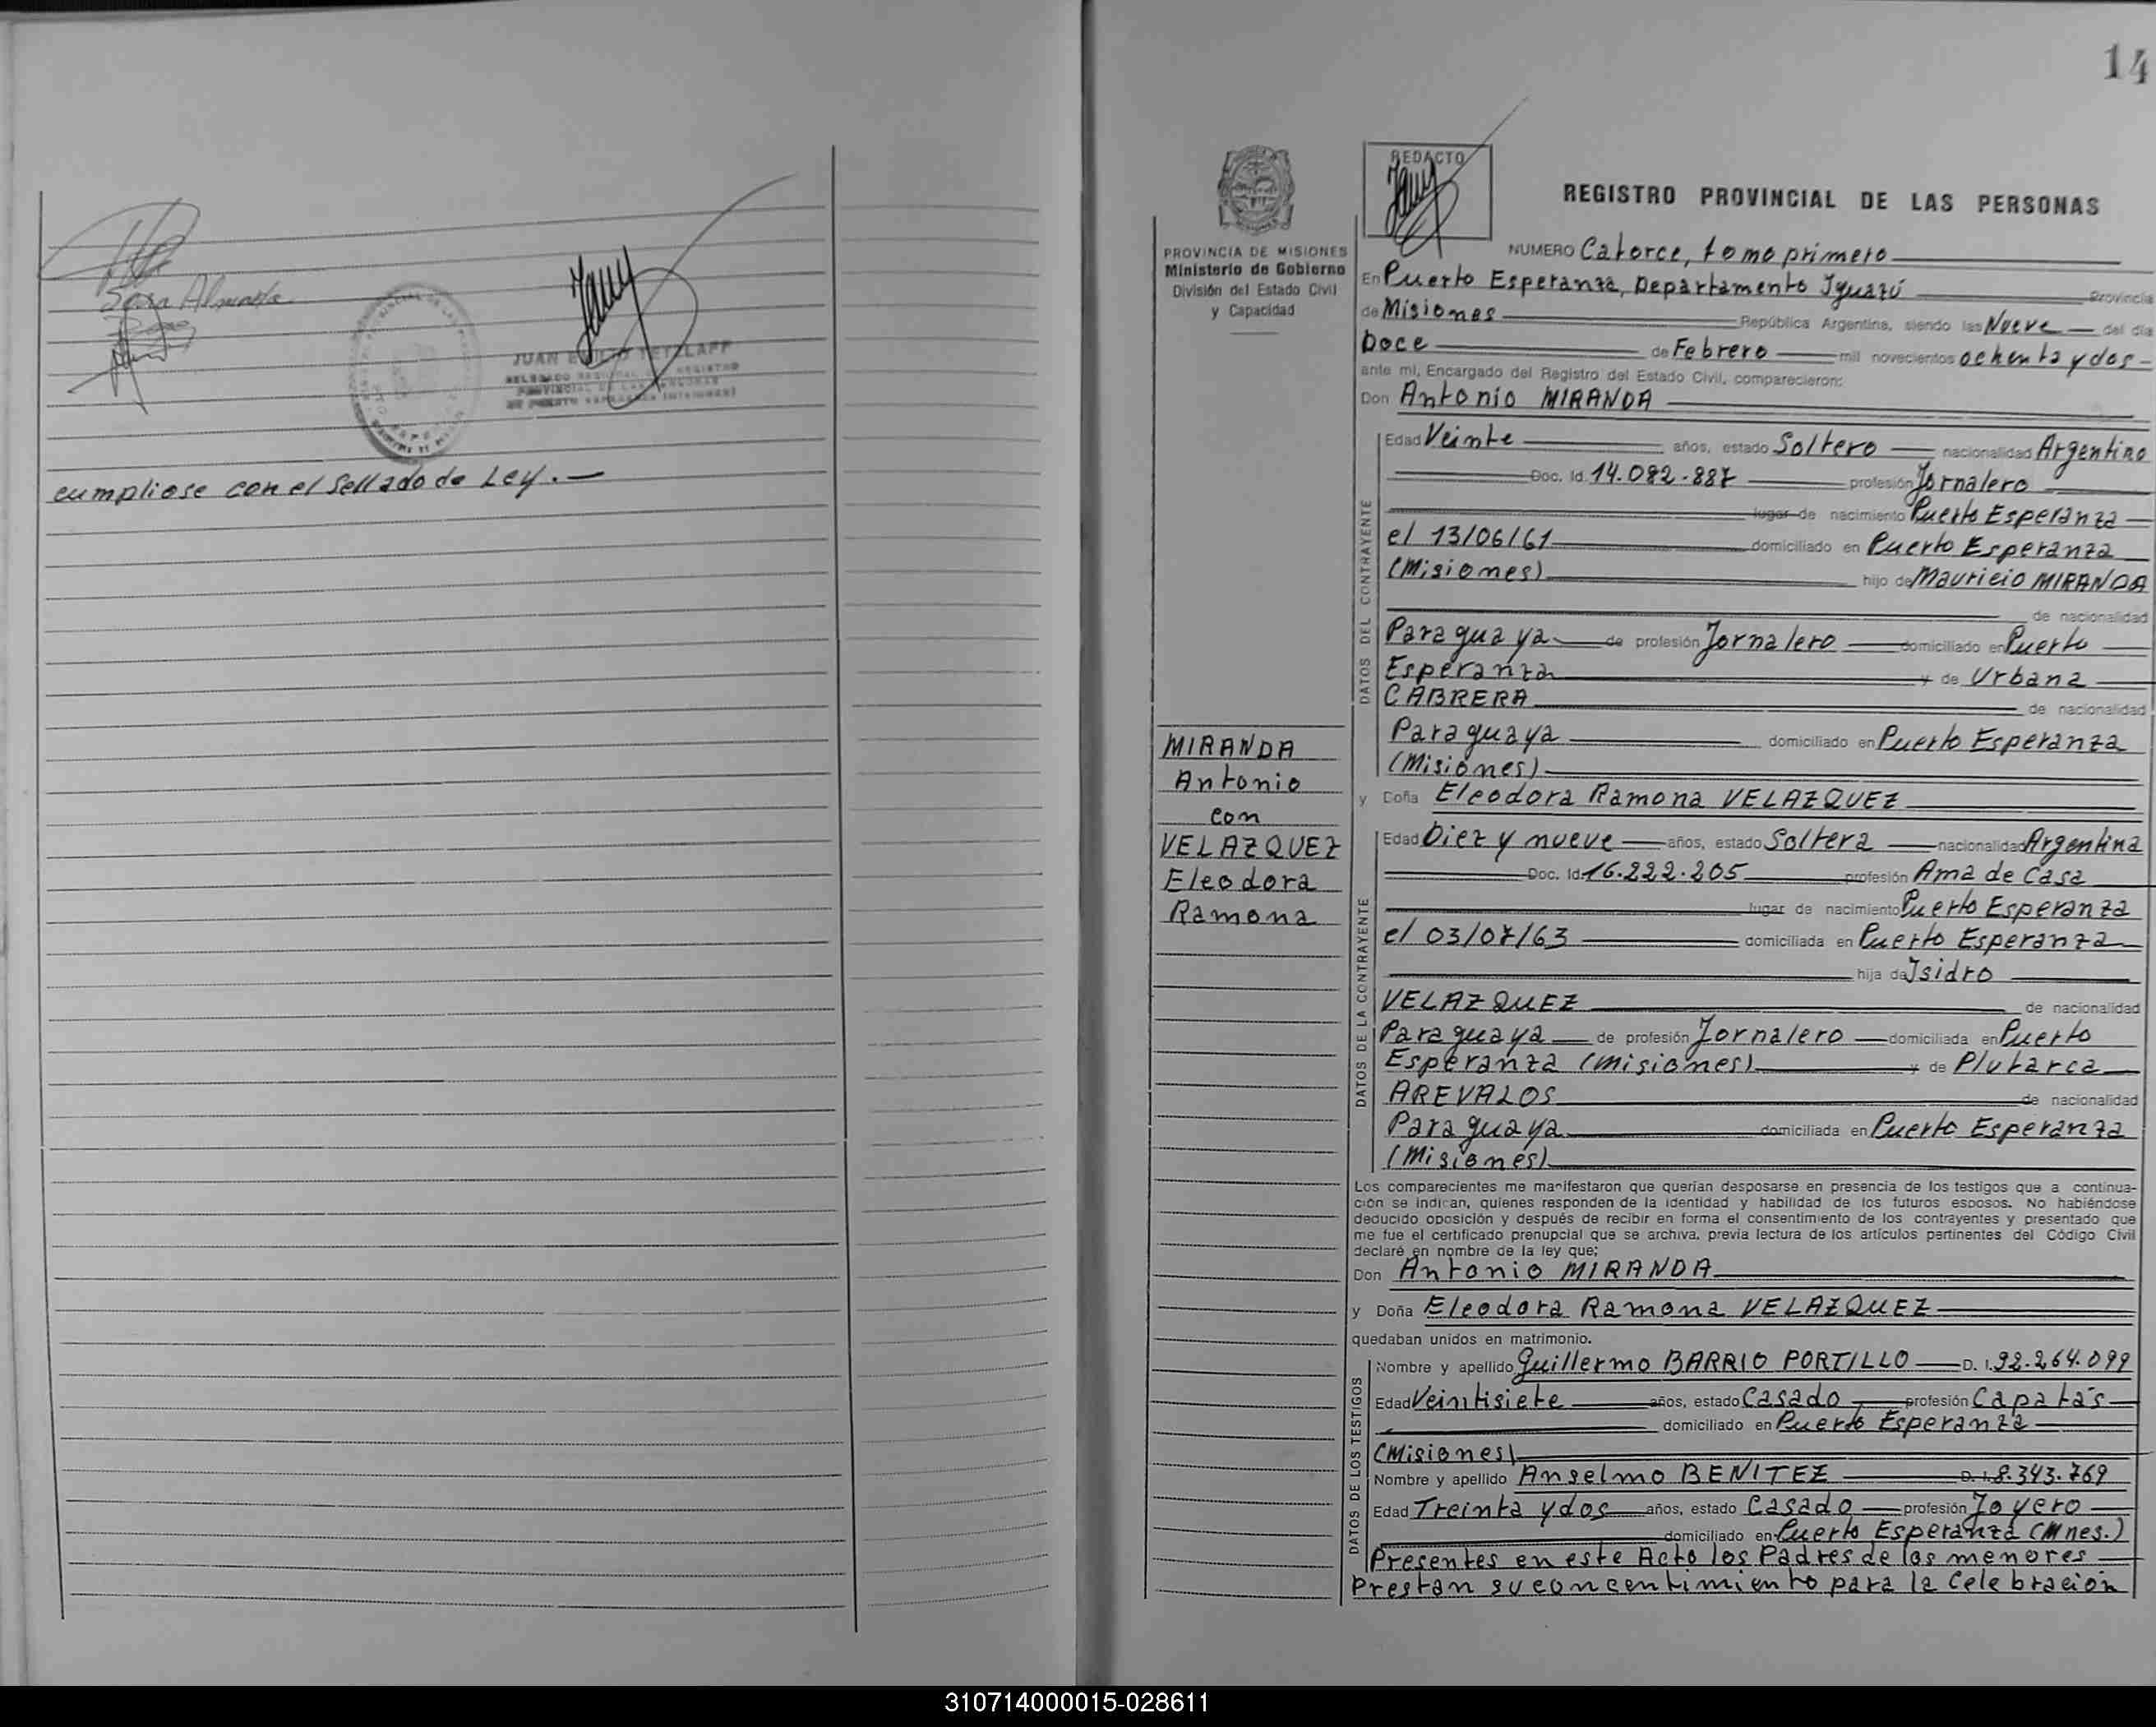 cumpliose con el Sellado de Ley.—
14
REDACTO
REGISTRO PROVINCIAL DE LAS PERSONAS
PROVINCIA DE MISIONES
Ministerio de Gobierno
División del Estado Civil
y Capacidad
NUMERO Catorce, tomo primero
En Puerto Esperanza, Departamento Iguazú Provincia
de Misiones República Argentina, siendo las Nueve del día
Doce de Febrero mil novecientos ochenta y dos
ante mí, Encargado del Registro del Estado Civil, comparecieron:
Don Antonio MIRANDA
DATOS DEL CONTRAYENTE
Edad Veinte años, estado Soltero nacionalidad Argentino
Doc. Id. 14.082.887 profesión Jornalero
lugar de nacimiento Puerto Esperanza
el 13/06/61 domiciliado en Puerto Esperanza
(Misiones) hijo de Mauricio MIRANDA
de nacionalidad
Paraguaya de profesión Jornalero domiciliado en Puerto
Esperanza y de Urbana
CABRERA de nacionalidad
Paraguaya domiciliado en Puerto Esperanza
(Misiones)
MIRANDA
Antonio
con
VELAZQUEZ
Eleodora
Ramona
y Doña Eleodora Ramona VELAZQUEZ
DATOS DE LA CONTRAYENTE
Edad Diez y nueve años, estado Soltera nacionalidad Argentina
Doc. Id. 16.222.205 profesión Ama de Casa
lugar de nacimiento Puerto Esperanza
el 03/07/63 domiciliada en Puerto Esperanza
hija de Isidro
VELAZQUEZ de nacionalidad
Paraguaya de profesión Jornalero domiciliada en Puerto
Esperanza (Misiones) y de Plutarca
AREVALOS de nacionalidad
Paraguaya domiciliada en Puerto Esperanza
(Misiones)
Los comparecientes me manifestaron que querían desposarse en presencia de los testigos que a continua-
ción se indican, quienes responden de la identidad y habilidad de los futuros esposos. No habiéndose
deducido oposición y después de recibir en forma el consentimiento de los contrayentes y presentado que
me fue el certificado prenupcial que se archiva, previa lectura de los artículos pertinentes del Código Civil
declaré en nombre de la ley que;
Don Antonio MIRANDA
y Doña Eleodora Ramona VELAZQUEZ
quedaban unidos en matrimonio.
DATOS DE LOS TESTIGOS
Nombre y apellido Guillermo BARRIO PORTILLO D. I. 92.264.099
Edad Veintisiete años, estado Casado profesión Capatás
domiciliado en Puerto Esperanza
(Misiones)
Nombre y apellido Anselmo BENITEZ D. I. 8.343.769
Edad Treinta y dos años, estado Casado profesión Joyero
domiciliado en Puerto Esperanza (Mnes.)
Presentes en este Acto los Padres de los menores
Prestan su concentimiento para la Celebración
310714000015-028611